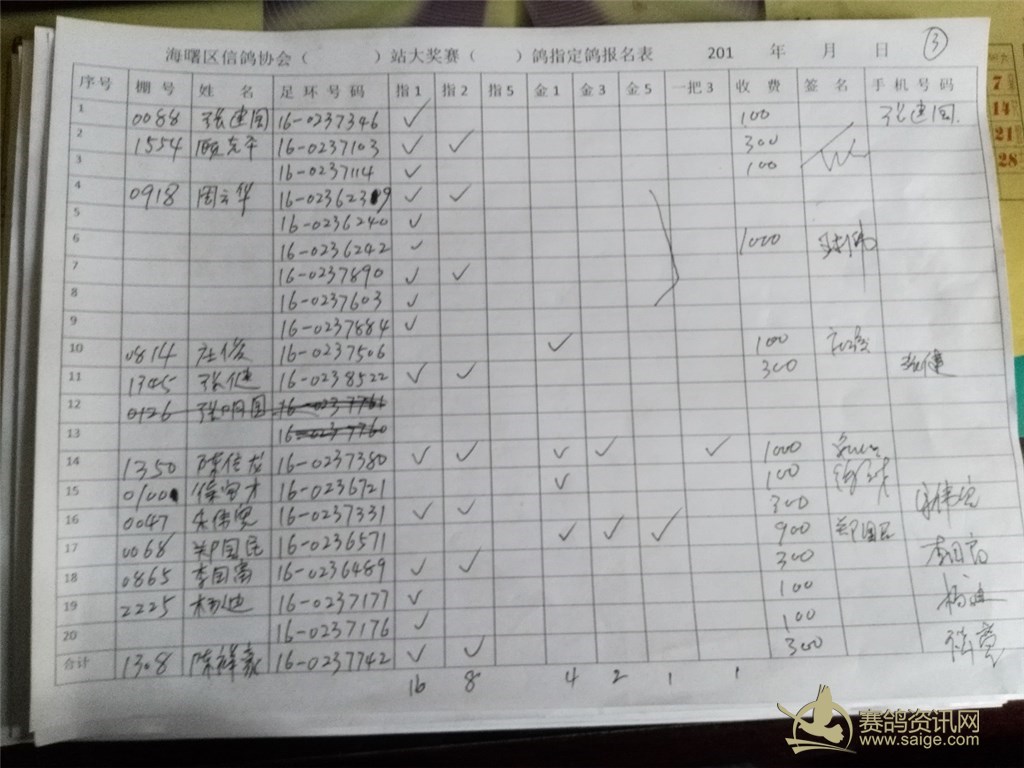 海曙区信鸽协会（ ）站大奖赛（ ）鸽指定鸽报名表 201 年 月 日 ③
序号 棚号 姓名 足环号码 指1 指2 指5 金1 金3 金5 一把3 收费 签名 手机号码
1 0088 张建国 16-0237346 ✓ 100 张建国
2 1554 顾克平 16-0237103 ✓ ✓ 300
3 16-0237114 ✓ 100
4 0918 周云华 16-0236239 ✓ ✓
5 16-0236240 ✓
6 16-0236242 ✓ 1000
7 16-0237890 ✓ ✓
8 16-0237603 ✓
9 16-0237884 ✓
10 0814 庄俊 16-0237506 ✓ 100
11 1345 张健 16-0238522 ✓ ✓ 300 张健
12 0126 张明国 16-0237761
13 16-0237760
14 1350 陈信龙 16-0237380 ✓ ✓ ✓ ✓ ✓ 1000
15 0100 16-0236721 ✓ 100
16 0047 16-0237331 ✓ ✓ 300
17 0068 郑国民 16-0236571 ✓ ✓ ✓ 900 郑国民
18 0865 李国富 16-0236489 ✓ ✓ 300 李国富
19 2225 杨迪 16-0237177 ✓ 100 杨迪
20 16-0237176 ✓ 100
合计 1308 陈祥豪 16-0237742 ✓ ✓ 300
16 8 4 2 1 1
7
14
21
28
赛鸽资讯网
www.saige.com